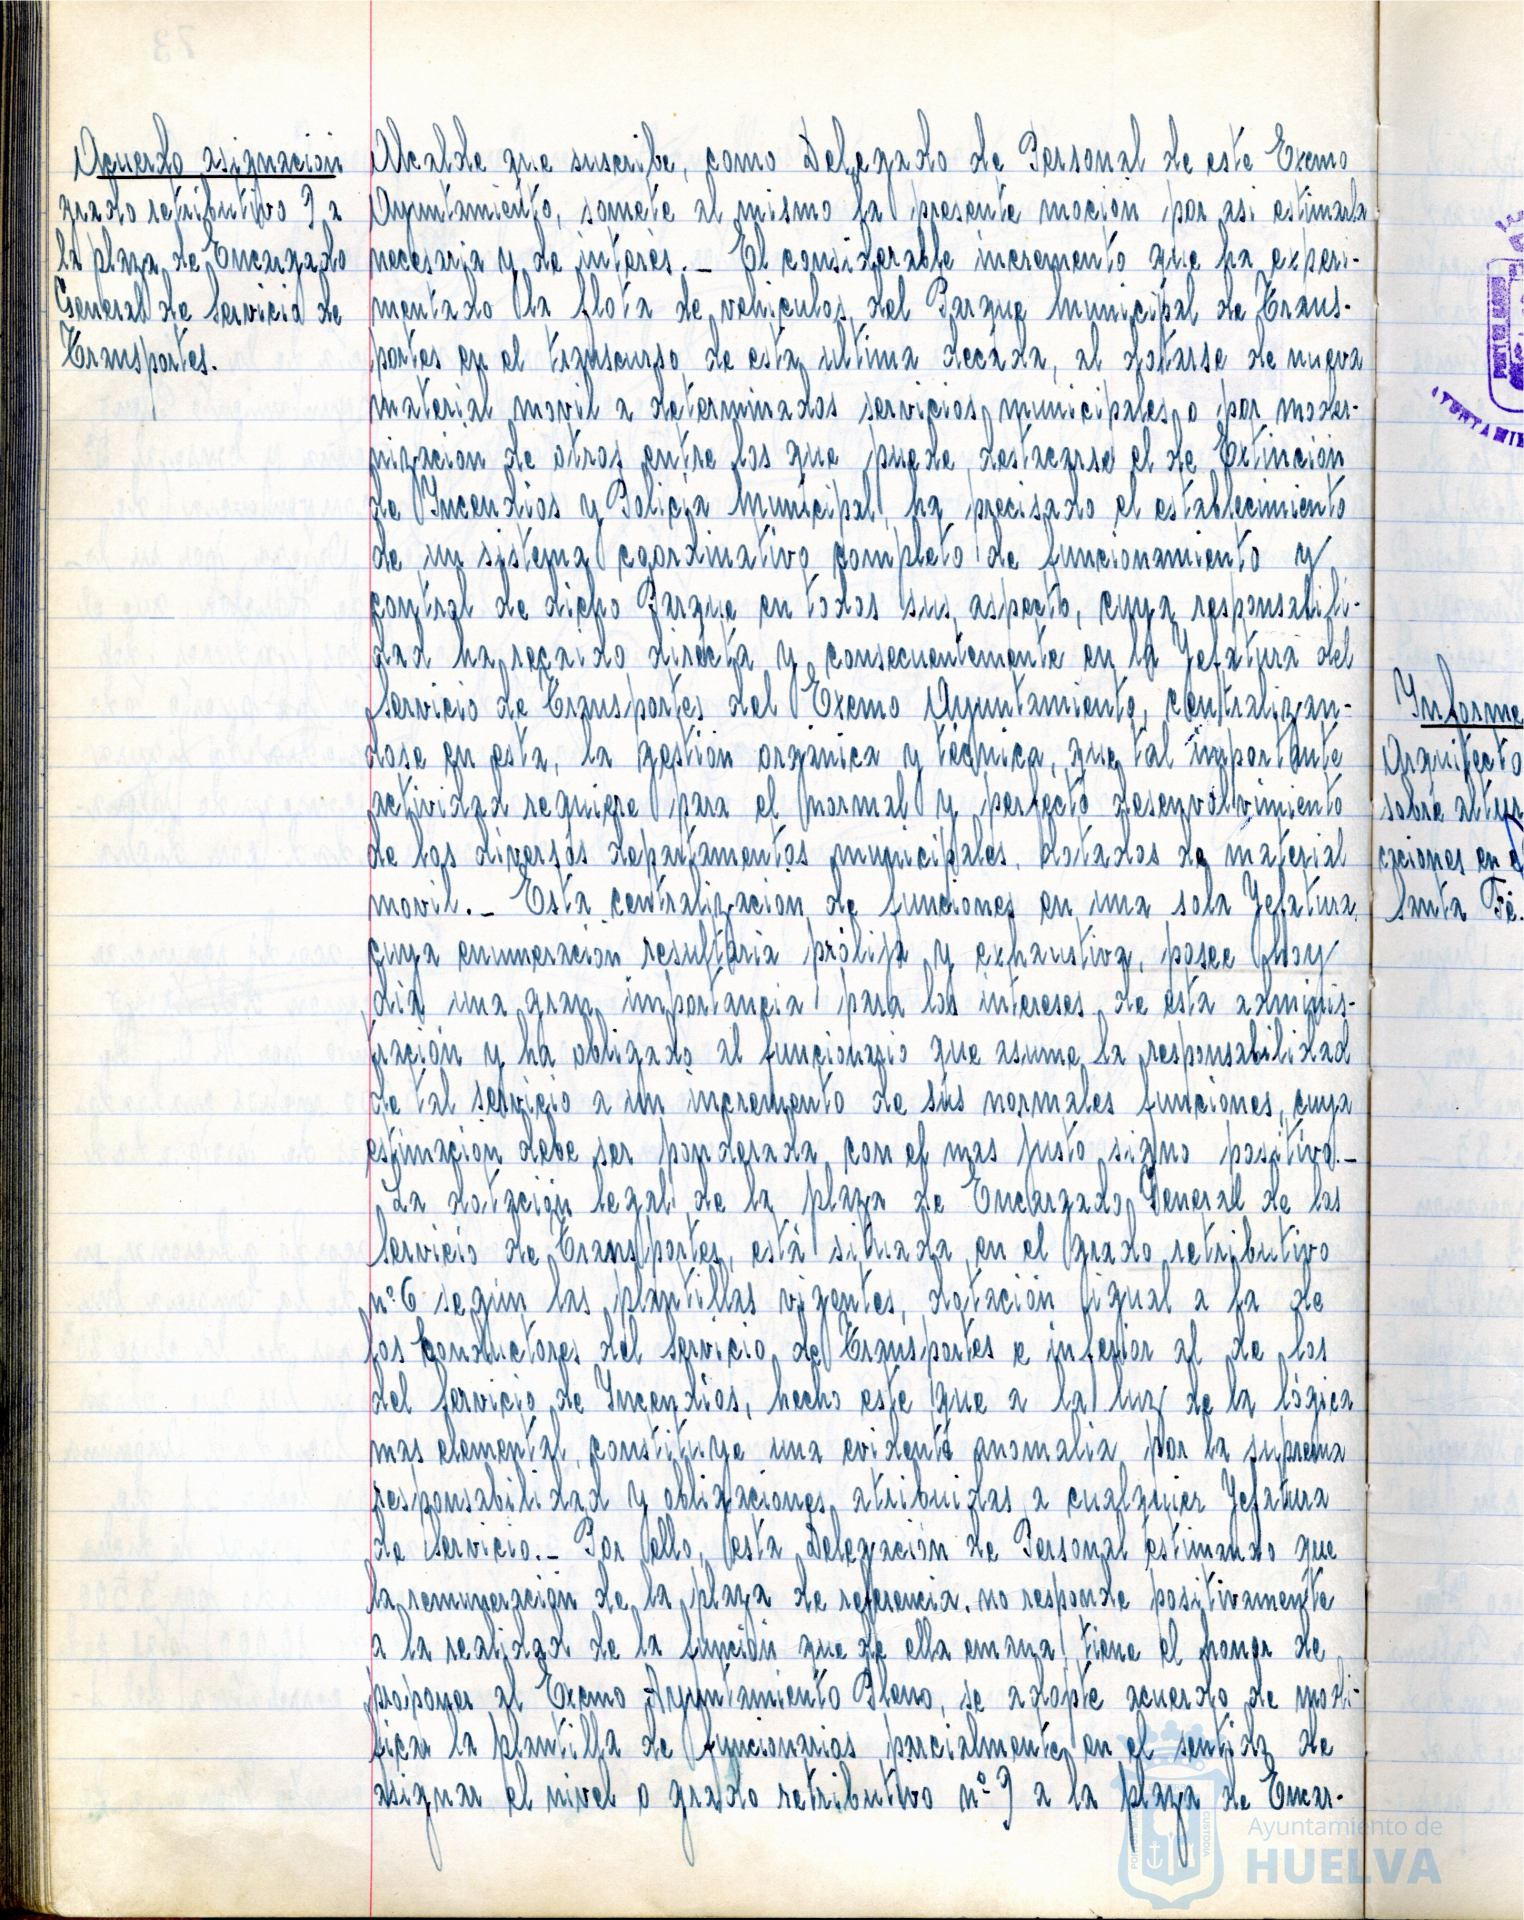 Acuerdo asignacion
grado retributivo 9 a
la plaza de Encargado
General de Servicio de
Transportes.
Alcalde que suscribe, como Delegado de Personal de este Excmo
Ayuntamiento, somete al mismo la presente moción por asi estimarla
necesaria y de interés.- El considerable incremento que ha experi-
mentado la flota de vehiculos del Parque Municipal de Trans-
portes en el transcurso de esta ultima decada, al dotarse de nuevo
material movil a determinados servicios municipales o por moder-
nizacion de otros entre los que puede destacarse el de Extinción
de Incendios y Policía Municipal, ha precisado el establecimiento
de un sistema coordinativo completo de funcionamiento y
control de dicho Parque en todos sus aspecto, cuya responsabili-
dad ha recaido directa y consecuentemente en la Jefatura del
Servicio de Transportes del Excmo Ayuntamiento, centralizan-
dose en esta, la gestión orgánica y técnica, que tal importante
actividad requiere para el normal y perfecto desenvolvimiento
de los diversos departamentos municipales, dotados de material
movil.- Esta centralizacion de funciones en una sola Jefatura,
cuya enumeración resultaria prólija y exhaustiva, posee hoy
dia una gran importancia para los intereses de esta adminis-
tración y ha obligado al funcionario que asume la responsabilidad
de tal servicio a un incremento de sus normales funciones, cuya
estimación debe ser ponderada con el mas justo signo positivo.-
La dotación legal de la plaza de Encargado General de los
Servicio de Transportes, está situada en el grado retributivo
nº 6 según las plantillas vigentes, dotación igual a la de
los Conductores del Servicio de Transportes e inferior al de los
del Servicio de Incendios, hecho este que a la luz de la lógica
mas elemental, constituye una evidente anomalia por la suprema
responsabilidad y obligaciones atribuidas a cualquier Jefatura
de Servicio.- Por ello, esta Delegación de Personal estimando que
la remuneración de la plaza de referencia, no responde positivamente
a la realidad de la función que de ella emana, tiene el honor de
proponer al Excmo Ayuntamiento Pleno, se adopte acuerdo de modi-
ficar la plantilla de funcionarios parcialmente, en el sentido de
asignar el nivel o grado retributivo nº 9 a la plaza de Encar-
Informe
Arquitecto
sobre altur
caciones en el
Santa Fé.
Ayuntamiento de
HUELVA